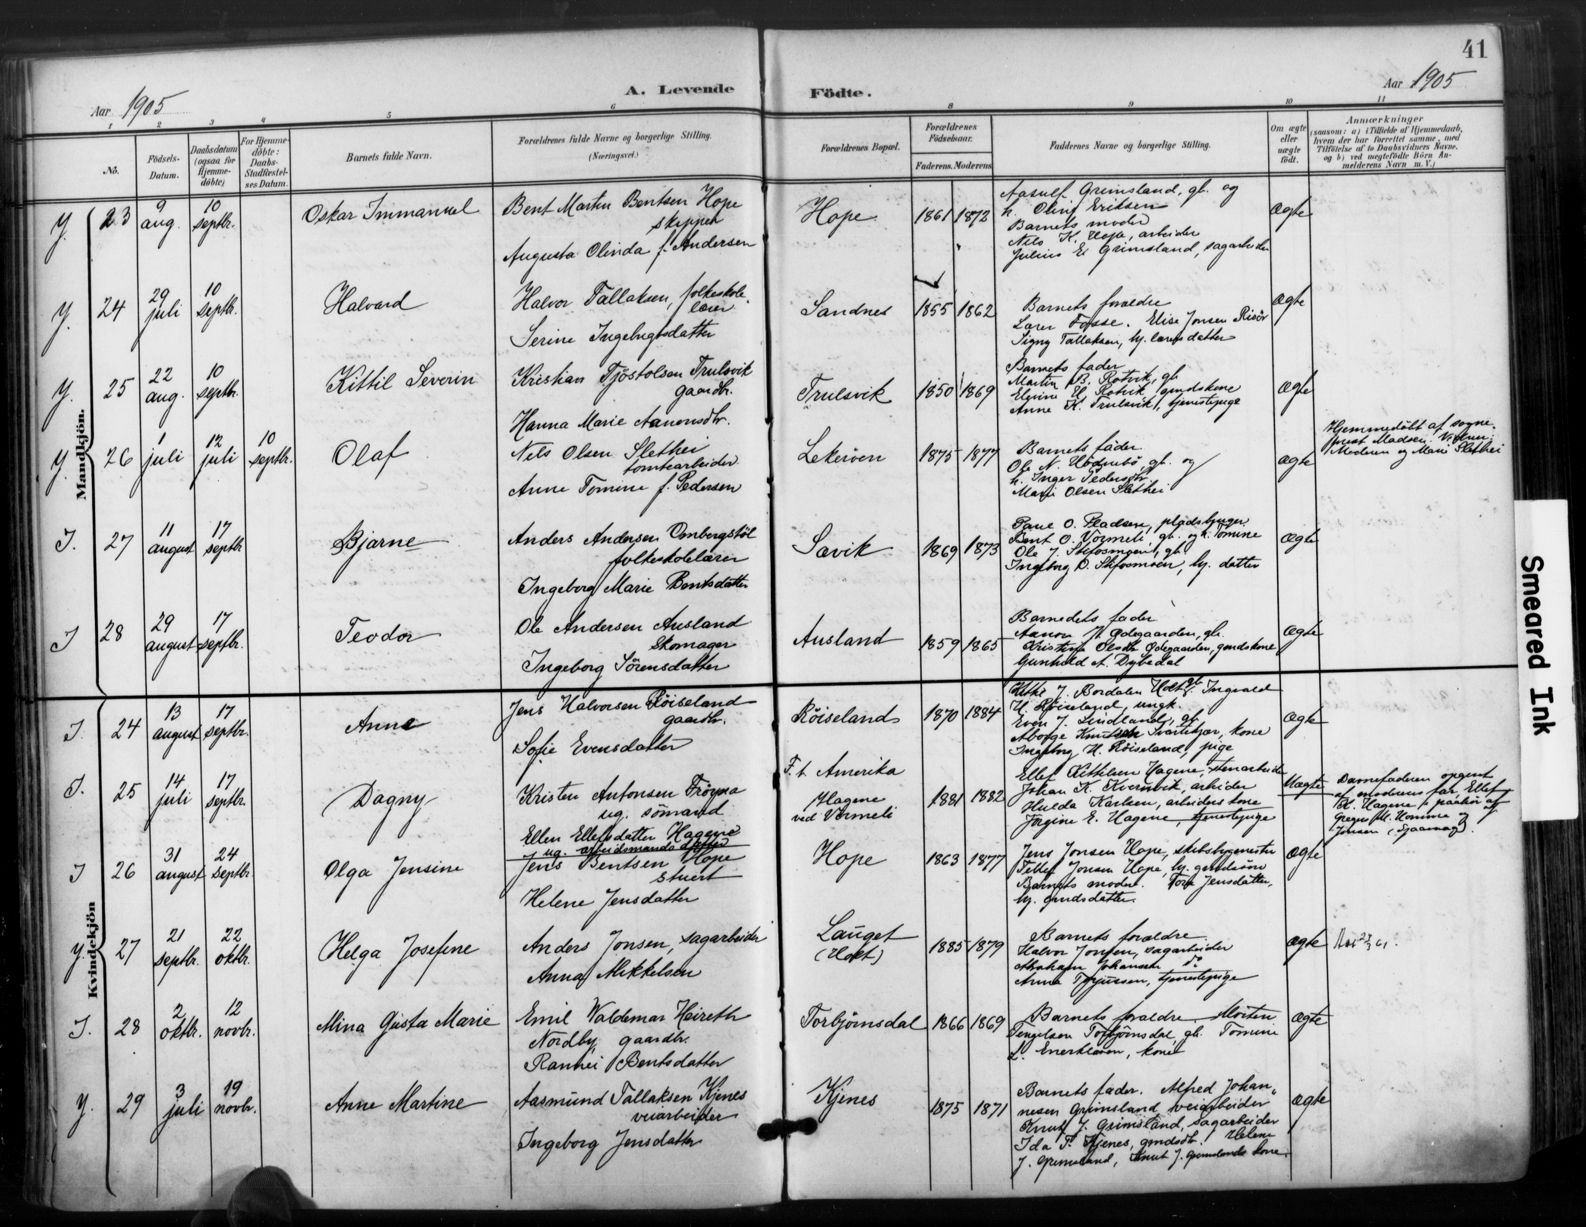 41
Aar 1905
A. Levende Fødte.
Aar 1905
1 2 3 4 5 6 8 9 10 11
No.
Fødsels-Datum.
Daabsdatum (ogsaa for Hjemme-døbte)
For Hjemme-døbte: Daabs-Stadfæstel-ses Datum.
Barnets fulde Navn.
Forældrenes fulde Navne og borgerlige Stilling.
(Næringsvei.)
Forældrenes Bopæl.
Forældrenes Fødselsaar.
Faderens. Moderens
Faddernes Navne og borgerlige Stilling.
Om ægte eller uægte født.
Anmærkninger
(saasom: a) i Tilfælde af Hjemmedaab, hvem der har forrettet samme, med Tilføielse af to Daabsvidners Navne. og b) ved uægtefødte Børn An-melderens Navn m. V.)
Mandkjön.
Y. 23 9 aug. 10 septbr. Oskar Immanuel
Bent Martin Bentsen Hope
skipper
Augusta Olinda f. Andersen
Hope 1861 1872
Aasulf Grimsland, gb. og
h. Oliva Eriksen
Barnets moder
Nils K. Hope, arbeider
Julius E. Grimsland, sagarbeider
Ægte
Y. 24 29 juli 10 septbr. Halvard
Halvor Tallaksen, folkeskole-
lærer
Serine Ingebregtsdatter
Sandnes 1855 1862
Barnets forældre
Lærer Fosse. Elise Jonsen Risør
Signy Tallaksen, hj. lærersdatter
Ægte
Y. 25 22 aug. 10 septbr. Kittil Severin
Kristian Tjöstolsen Trulsvik
gaardbr.
Hanna Marie Aanonsdtr.
Trulsvik 1850 1869
Barnets fader
Martin B. Rotvik, gb.
Elvine H. Rotvik, gmdskone
Anne K. Trulsvik, tjenestepige
Ægte
Y. 26 1 juli 12 juli 10 septbr. Olaf
Nils Olsen Slethei
tomtearbeider
Anne Tomine f. Pedersen
Lekeröen 1875 1877
Barnets fader
Ole N. gb. og
h. Inger Pedersdtr.
Marie Olsen Slethei
Ægte
Hjemmedöbt af sogne-
prest Madsen. Vidner:
Moderen og Marie Slethei
I. 27 11 august 17 septbr Bjarne
Anders Andersen Ombergstöl
folkeskolelærer
Ingeborg Marie Bentsdatter
Savik 1869 1873
O. Pladsen, pladsbruger
Bent O. Vormeli, gb. og h. Tomine
Ole J. Skforsmoen, gb.
Ingeborg O. Skforsmoen, hj. datter
Ægte
I 28 29 august 17 septbr. Teodor
Ole Andersen Ausland
Skomager
Ingeborg Sörensdatter
Ausland 1859 1865
Barnedets fader
Aanon N. Ødegaarden, gb.
Kristine Olsdtr Ødegaarden, gmdskone
Gunhild A. Dybedal
Ægte
Kvindekjön
I. 24 13 august 17 septbr. Anne
Jens Halvorsen Röiseland
gaardbr.
Sofie Evensdatter
Röiseland 1870 1884
J. Bordalen Holt, gb. Ingvald
H. Röiseland, ungk.
Even J. Lindland, gb.
Aborge Knudsen Svartkjær, kone
Ingeborg H. Röiseland, pige
Ægte
I. 25 14 juli 17 septbr. Dagny
Kristen Antonsen Fröyna
ug. sömand
Ellen Ellefsdatter Hagene
ug. arbeidsmands datter
F. t. Amerika
Hagene
ved Vormeli
1881 1882
Ellef Kittelsen Hagene, stenarbeider
Johan K. Kvernvik, arbeider
Hulda Karlsen, arbeiders kone
Jörgine E. Hagene tjenestepige
Uægte
Barnefaderen opgivet
af moderens far Ellef
K. Hagene, paahör af
Greger M. Homme og
Jensen (Sjaamag).
I 26 31 august 24 septbr. Olga Jensine
Jens Bentsen Hope
Stuert
Helene Jensdatter
Hope 1863 1877
Jens Jonsen Hope, skibsbygmester
Tellef Jonsen Hope, hj. gmdssön
Barnets moder. Tora Jensdatter,
hj. gmdsdatter.
Ægte
Y. 27 21 septbr. 22 oktbr. Helga Josefine
Anders Jonsen, sagarbeider
Anna Mikkelsen
Lauget
(Holt)
1885 1879
Barnets forældre
Halvor Jonsen, sagarbeider
Abraham Johansen do
Anna Torjussen, tjenestepige
Ægte
I. 28 2 oktbr. 12 novbr. Mina Gusta Marie
Emil Valdemar Heireth
Nordby, gaardbr.
Ranhei Bentsdatter
Torbjörnsdal 1866 1869
Barnets forældre Morten
Tengelsen Torbjörnsdal, gb. Tomine
L. Enerklæven, kone
Ægte
Y. 29 3 juli 19 novbr. Anne Martine
Aasmund Tallaksen Kjenes
veiarbeider
Ingeborg Jensdatter
Kjenes 1875 1871
Barnets fader. Alfred Johan-
nesen Grimsland veiarbeider
Knut J. Grimsland, sagarbeider
Ida T. Kjenes, gmdsdtr. Helene
J. Grimsland, Knut J. Grimslands kone.
Ægte
Smeared Ink